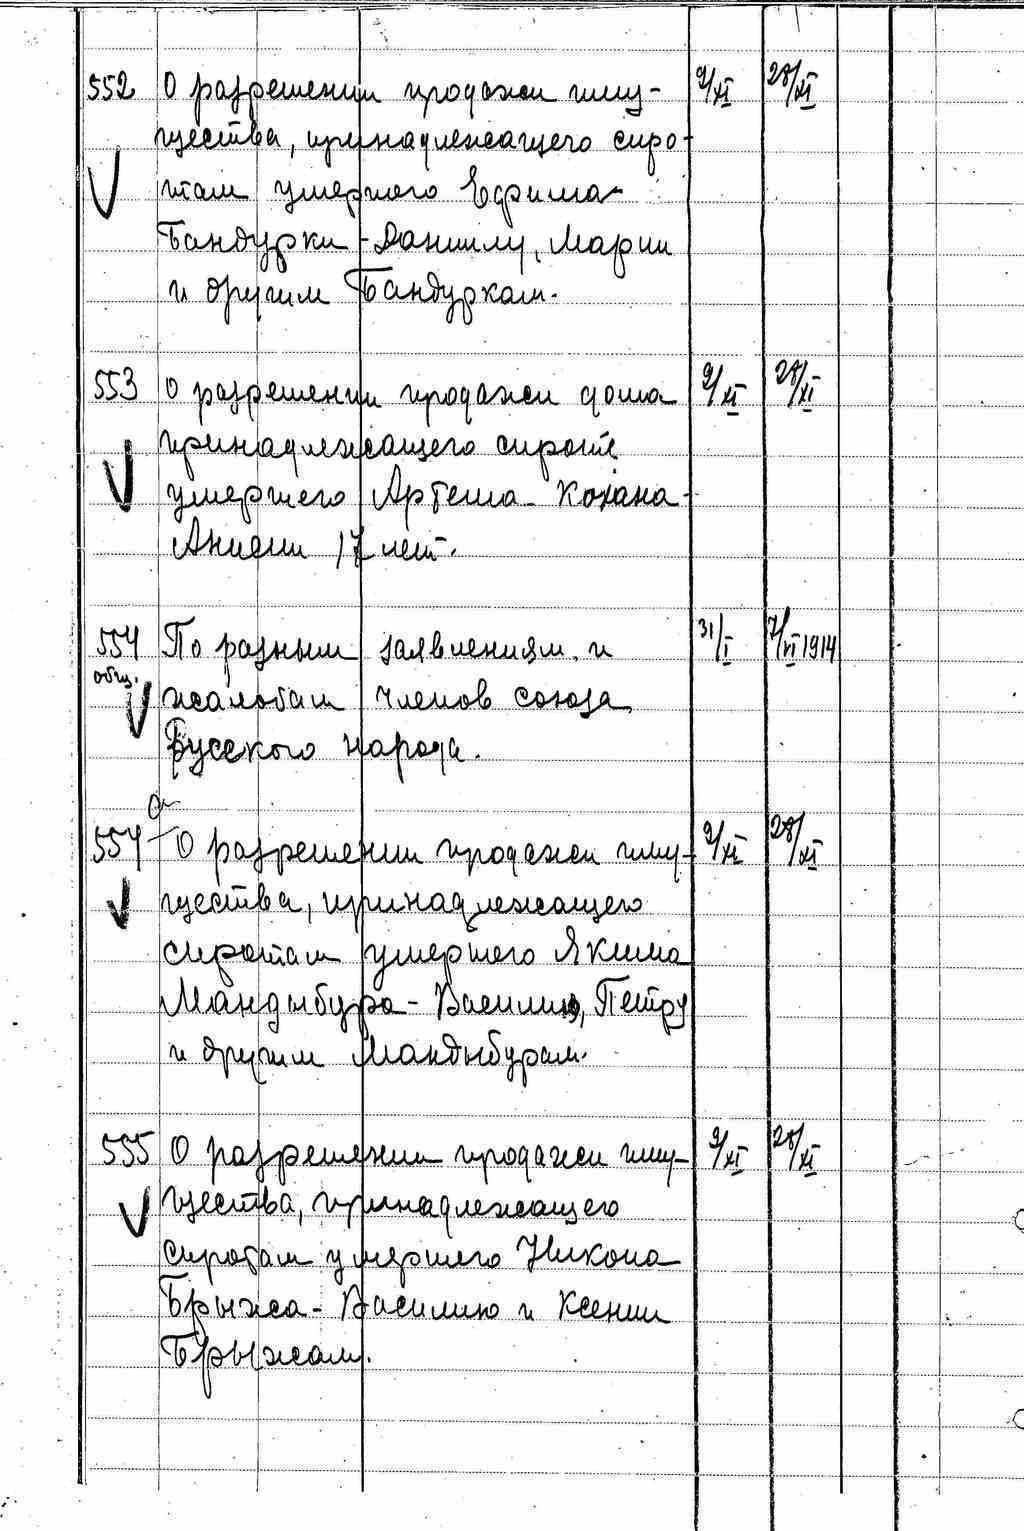 552 О разрешении продажи иму- 9/XI 28/XI
щества, принадлежащего сиро-
там умершего Ефима
Бандурки - Даниилу, Марии
и другим Бандуркам.
553 О разрешении продажи дома 9/XI 28/XI
принадлежащего сироте
умершего Артема Кохана -
Анисии 17 лет.
554 По разным заявлениям и 31/I 7/VI 1914
общ. жалобам членов союза
Русского народа.
554 а О разрешении продажи иму- 9/XI 28/XI
щества, принадлежащего
сиротам умершего Якима
Мандыбура - Василию, Петру
и другим Мандыбурам.
555 О разрешении продажи иму- 9/XI 28/XI
щества, принадлежащего
сиротам умершего Никона
Брыжа - Василию и Ксении
Брыжам.